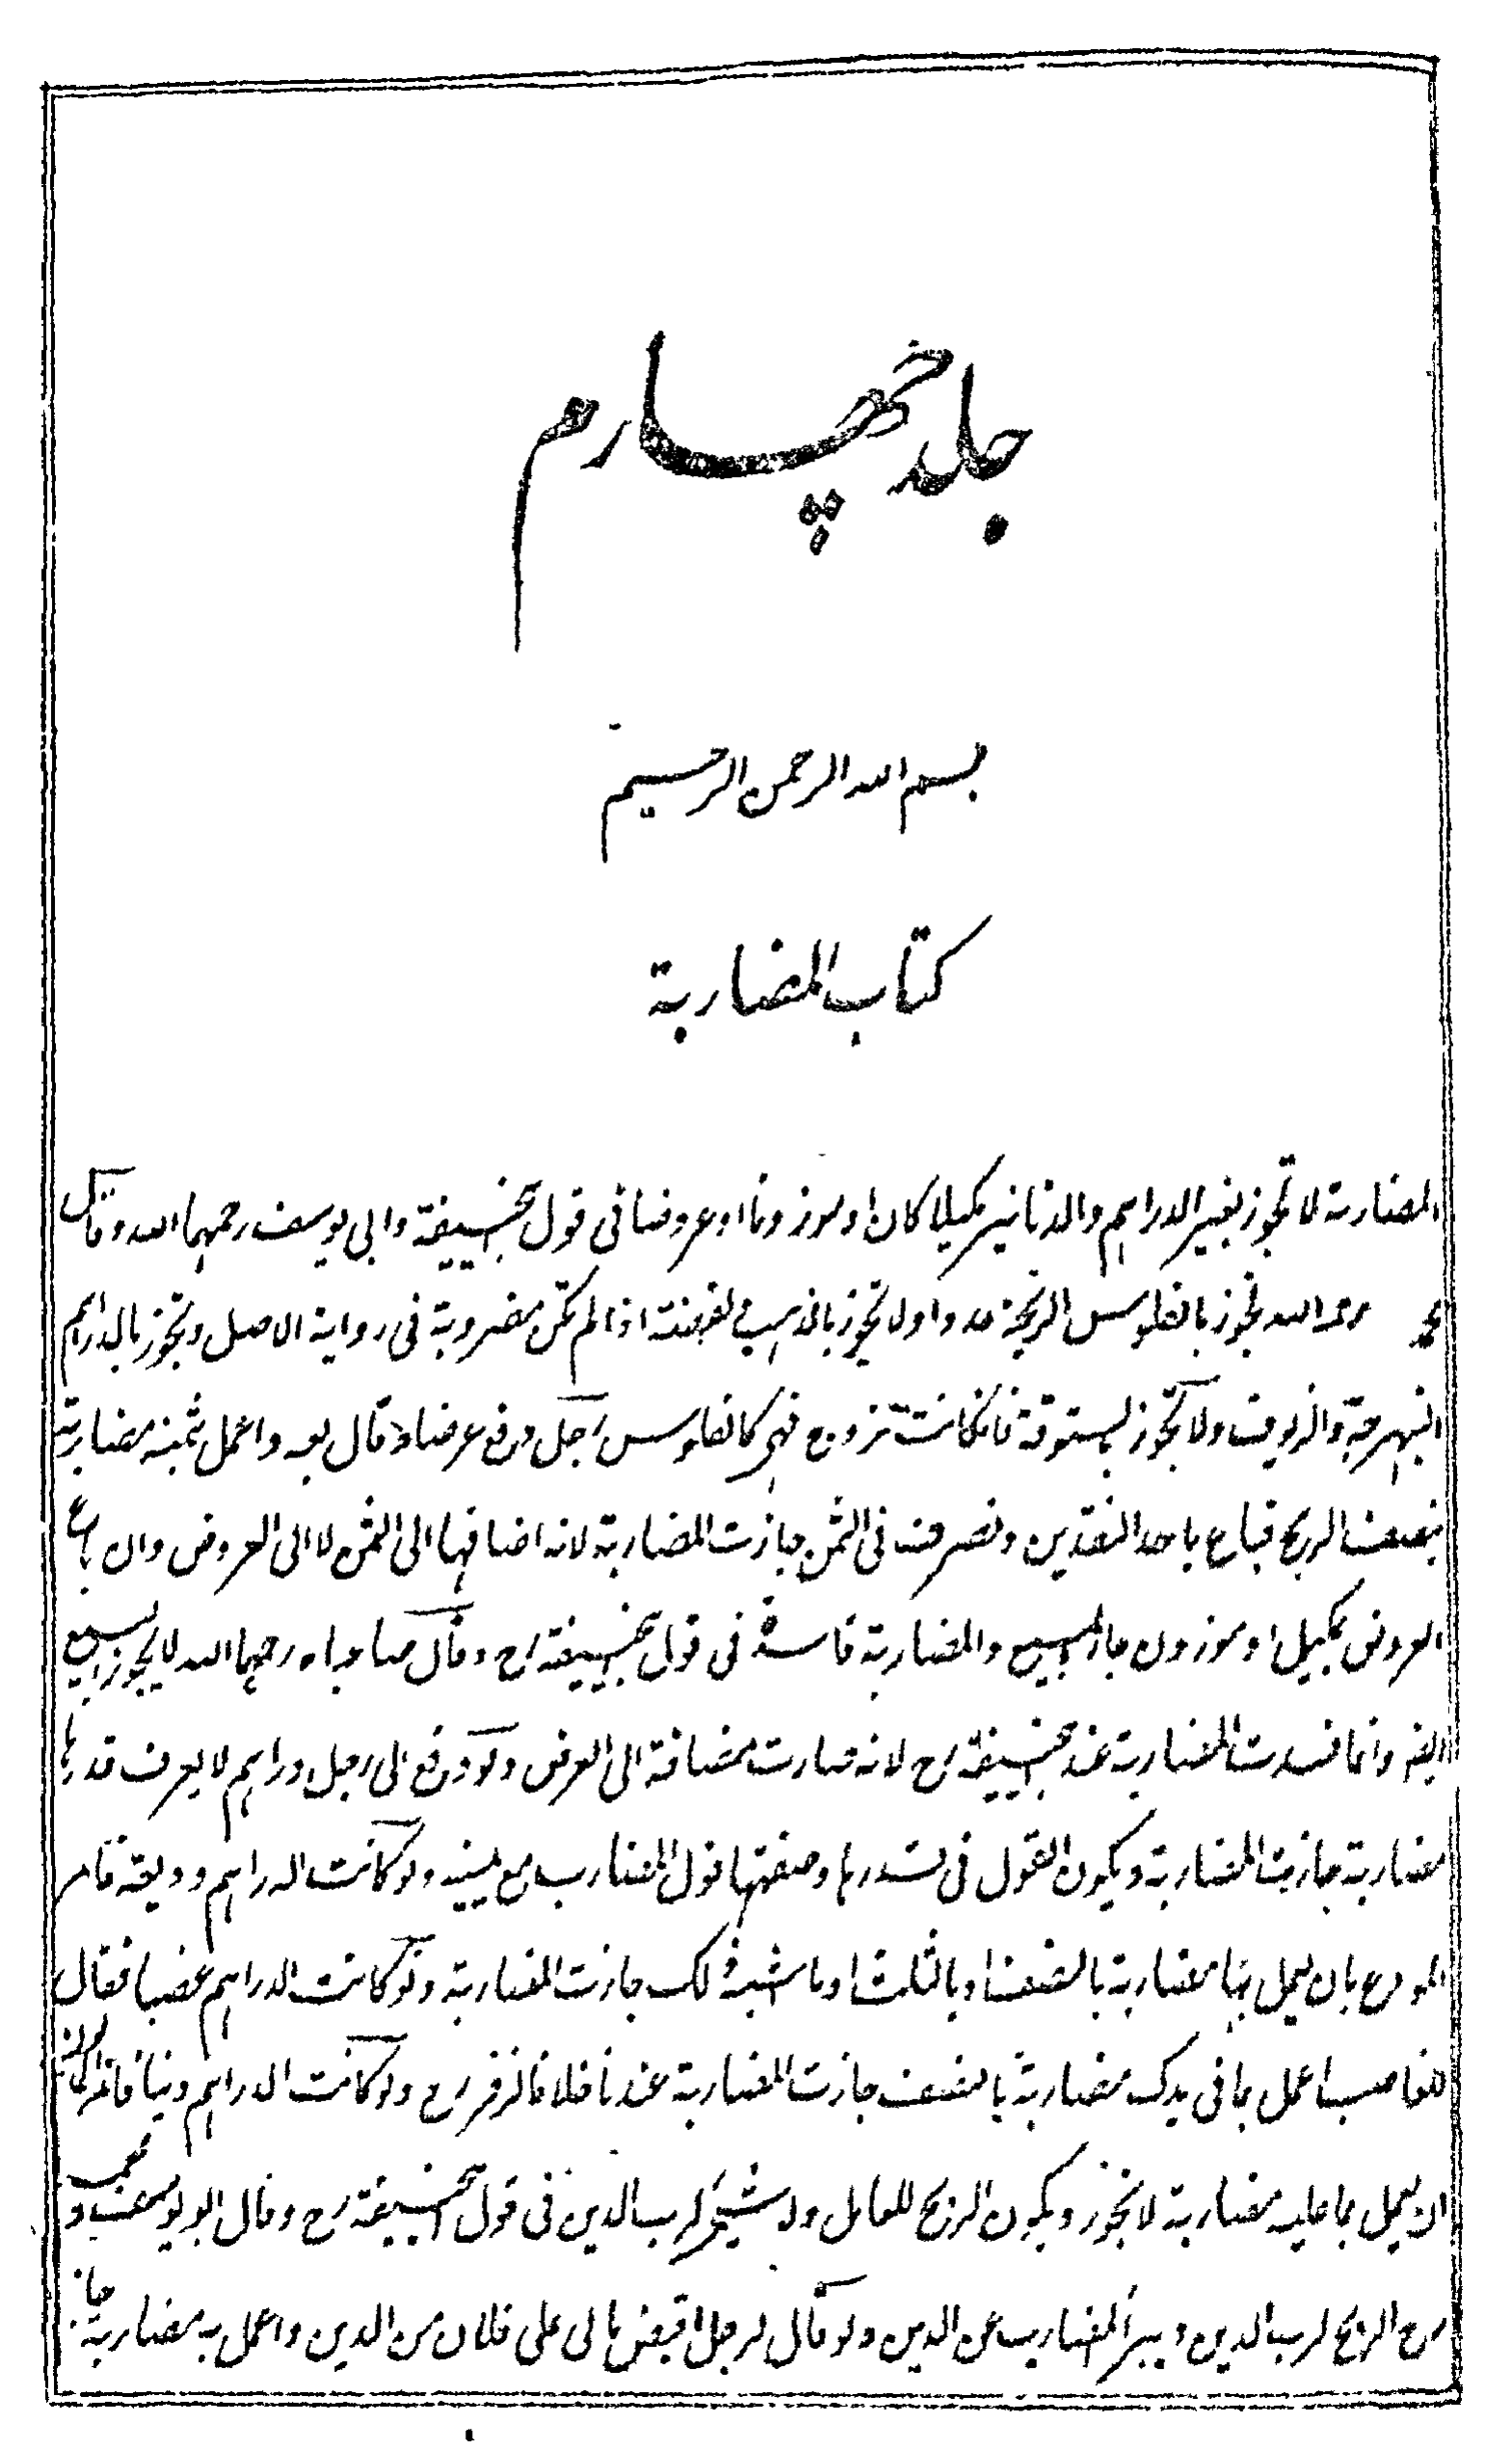 جلد چهارم
بسم الله الرحمن الرحيم
كتاب المضاربة
المضاربة لا تجوز بغير الدراهم والدنانير مكيلا كان او موزونا او عروضا في قول ابيحنيفة وابي يوسف رحمهما الله وقال
محمد رحمه الله تجوز بالفلوس الرائجة عددا ولا تجوز بالذهب والفضة اذا لم تكن مضروبة في رواية الاصل وتجوز بالدراهم
النبهرجة والزيوف ولا تجوز بالستوقة فانكانت تروج فهي كالفلوس رجل دفع عرضا وقال بعه واعمل بثمنه مضاربة
بنصف الربح فباع باحد النقدين وتصرف في الثمن جازت المضاربة لانه اضافها الى الثمن لا الى العروض وان باع
العروض بمكيل او موزون جاز البيع والمضاربة فاسدة في قول ابيحنيفة رح وقال صاحباه رحمهما الله لا يجوز البيع
ايضه وانما فسدت المضاربة عند ابيحنيفة رح لانه صارت مضافة الى العرض ولو دفع الى رجل دراهم لا يعرف قدرها
مضاربة جازت المضاربة ويكون القول في قدرها وصفتها قول المضارب مع يمينه ولو كانت الدراهم وديعة فامر
المودع بان يعمل بها مضاربة بالنصف او بالثلث او ما اشبه ذلك جازت المضاربة ولو كانت الدراهم غصبا فقال
للغاصب اعمل بما في يدك مضاربة بالنصف جازت المضاربة عندنا خلافا لزفر رح ولو كانت الدراهم دينا فامر المديون
ان يعمل بما عليه مضاربة لا تجوز ويكون الربح للعامل ولا شيئ لرب الدين في قول ابيحنيفة رح وقال ابو يوسف و محمد
رح الربح لرب الدين ويبرأ المضارب عن الدين ولو قال لرجل اقبض مالى على فلان من الدين واعمل به مضاربة جاز